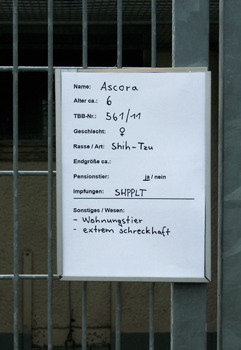 Name: Ascora
Alter ca.: 6
TBB-Nr.: 561/11
Geschlecht: ♀
Rasse / Art: Shih-Tzu
Endgröße ca.:
Pensionstier: ja / nein
Impfungen: SHPPLT
Sonstiges / Wesen:
- Wohnungstier
- extrem schreckhaft